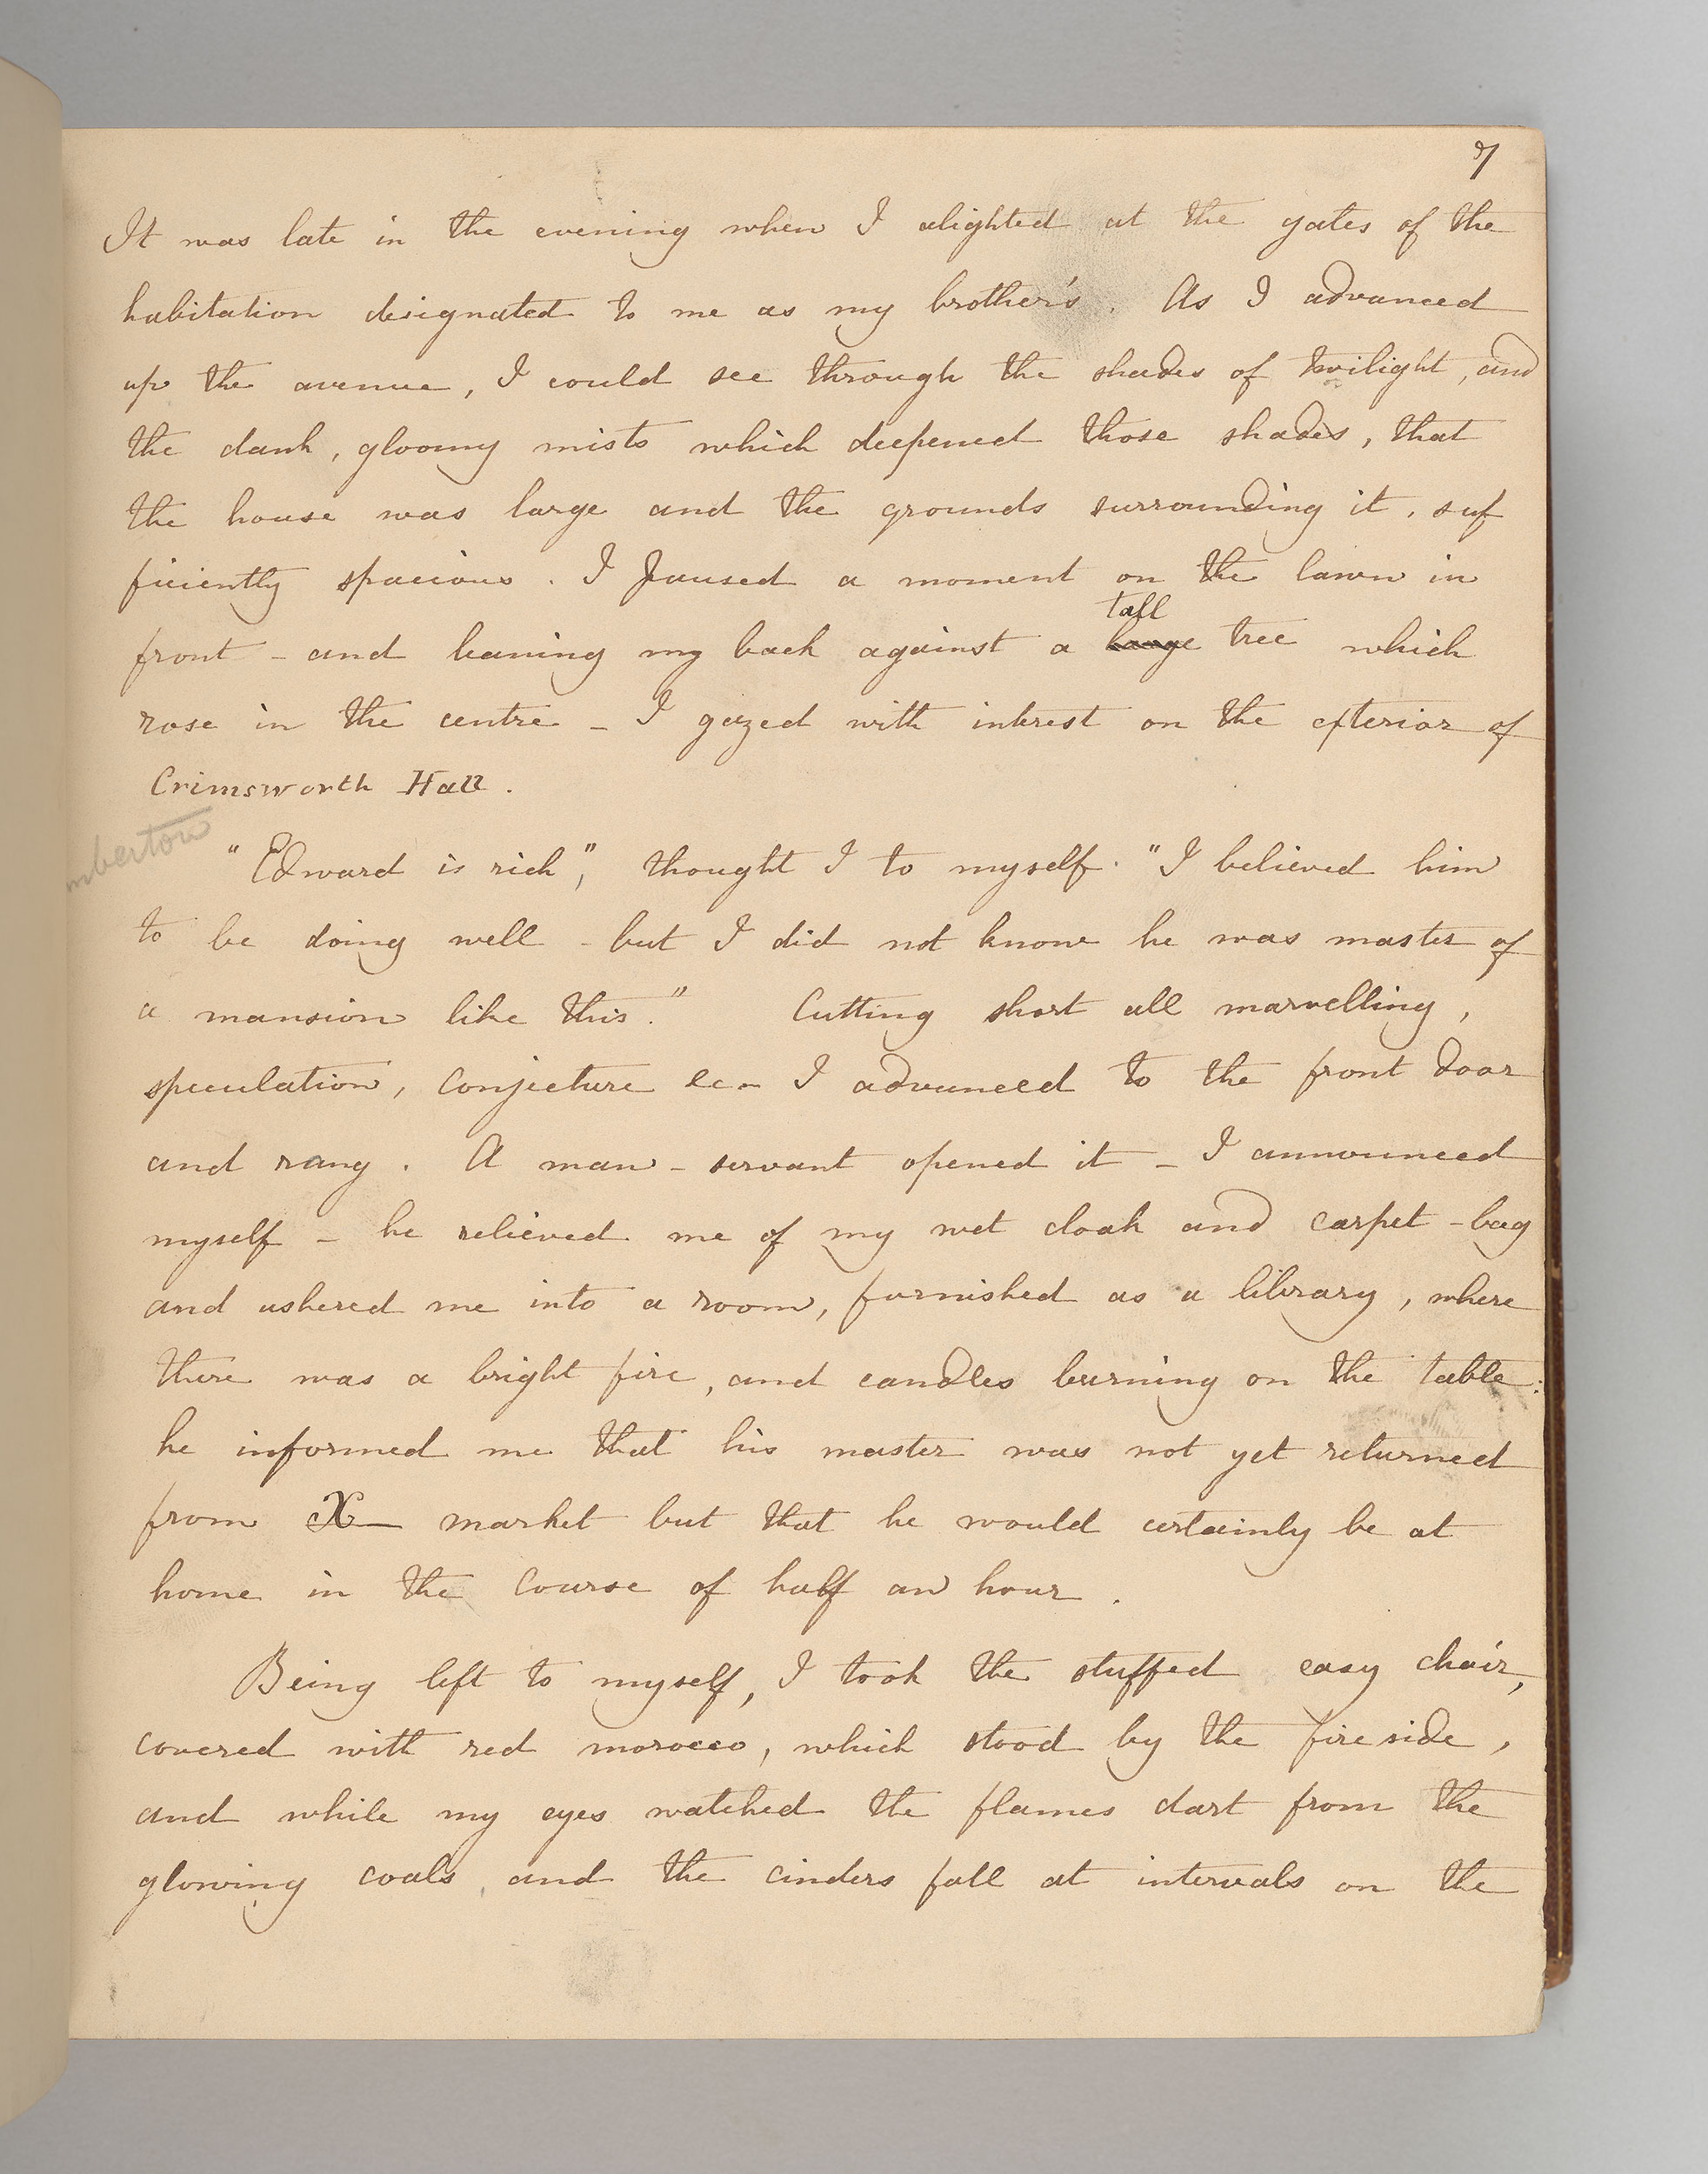 7
It was late in the evening when I alighted at the gates of the
habitation designated to me as my brother's. As I advanced
up the avenue, I could see through the shades of twilight, and
the dank, gloomy mists which deepened those shades, that
the house was large and the grounds surrounding it, suf
ficiently spacious. I paused a moment on the lawn in
tall
front - and leaning my back against a tree which
rose in the centre - I gazed with interest on the exterior of
Crimsworth Hall.
mberton
"Edward is rich," thought I to myself. "I believed him
to be doing well - but I did not know he was master of
a mansion like this." Cutting short all marvelling,
speculation, conjecture &c- I advanced to the front door
and rang. A man-servant opened it - I announced
myself - he relieved me of my wet cloak and carpet-bag
and ushered me into a room, furnished as a library, where
there was a bright fire, and candles burning on the table:
he informed me that his master was not yet returned
from X— market but that he would certainly be at
home in the course of half an hour.
Being left to myself, I took the stuffed easy chair,
covered with red morocco, which stood by the fireside,
and while my eyes watched the flames dart from the
glowing coals, and the cinders fall at intervals on the